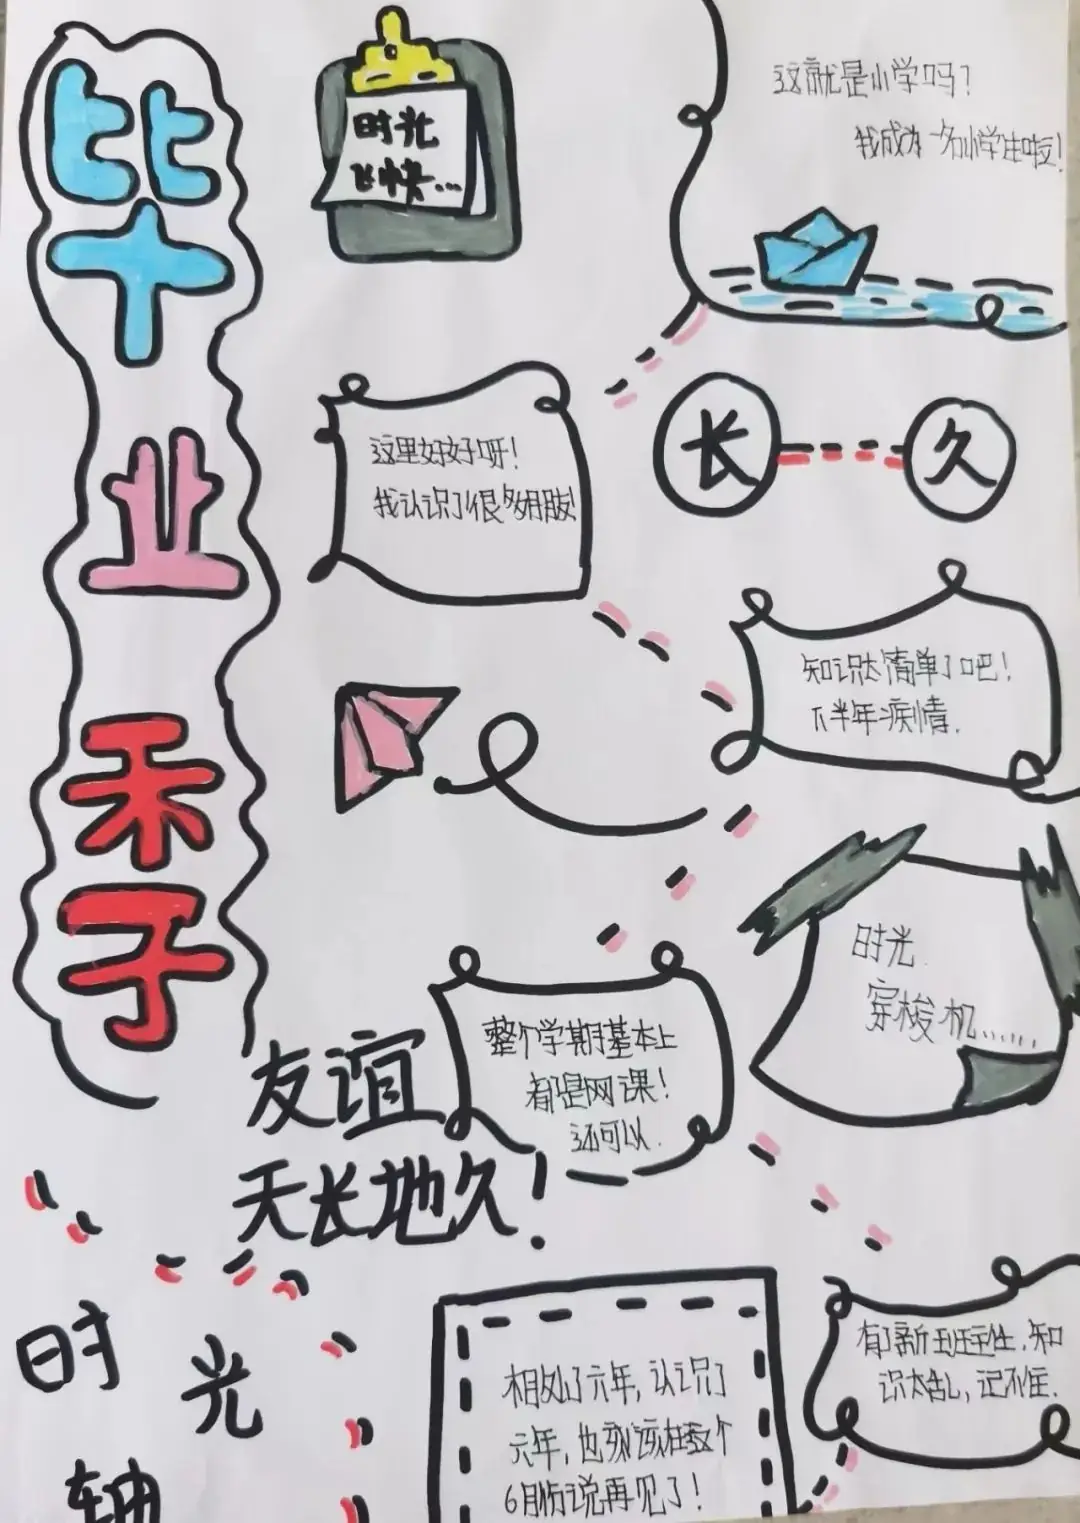 毕业季
时光
飞快...
这就是小学吗？
我成为一名小学生啦！
这里好好呀！
我认识了很多朋友！
长久
知识太简单了吧！
下半年疫情.
时光
穿梭机......
整个学期基本上
都是网课！
还可以.
友谊
天长地久！
有了新班主任.知
识太乱,记不住.
相处了六年,认识了
六年,也该在这个
6月份说再见了！
时光轴